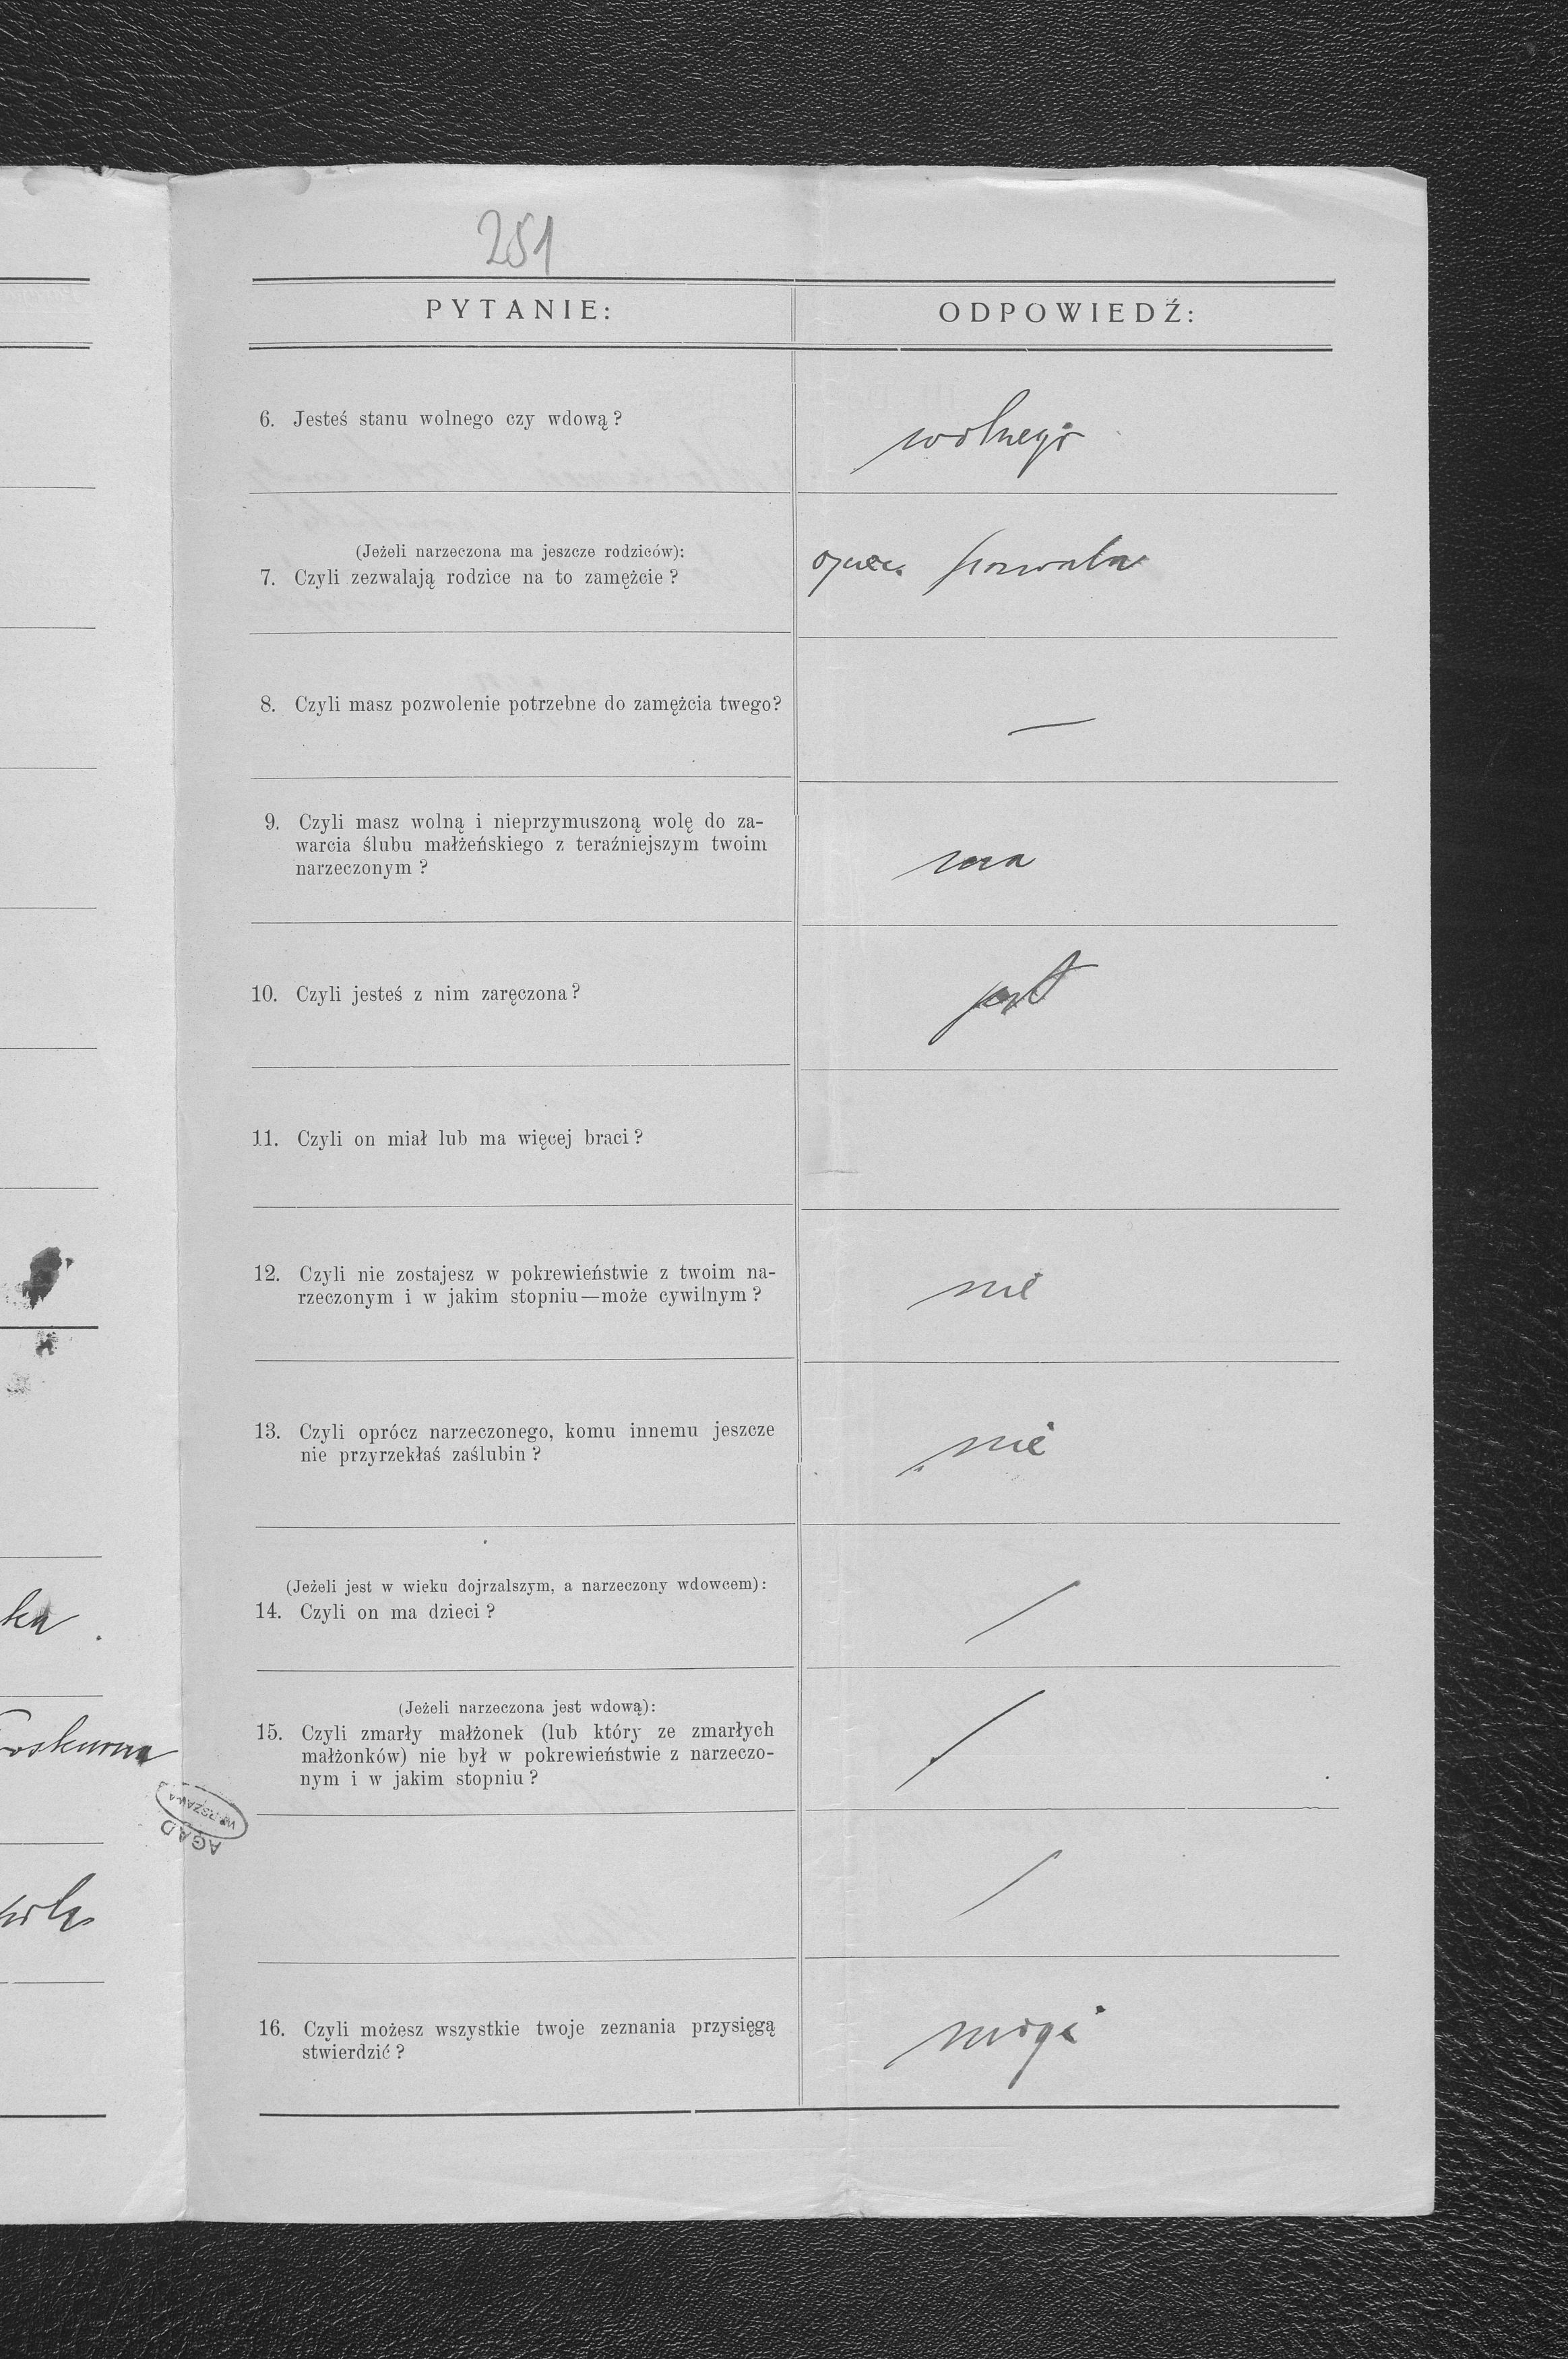 251
PYTANIE:
ODPOWIEDŹ:
6. Jesteś stanu wolnego czy wdową?
wolnego
(Jeżeli narzeczona ma jeszcze rodziców):
7. Czyli zezwalają rodzice na to zamężcie?
ojciec pozwala
8. Czyli masz pozwolenie potrzebne do zamężcia twego?
—
9. Czyli masz wolną i nieprzymuszoną wolę do za-
warcia ślubu małżeńskiego z teraźniejszym twoim
narzeczonym?
ma
10. Czyli jesteś z nim zaręczona?
jest
11. Czyli on miał lub ma więcej braci?
12. Czyli nie zostajesz w pokrewieństwie z twoim na-
rzeczonym i w jakim stopniu—może cywilnym?
nie
13. Czyli oprócz narzeczonego, komu innemu jeszcze
nie przyrzekłaś zaślubin?
nie
(Jeżeli jest w wieku dojrzalszym, a narzeczony wdowcem):
14. Czyli on ma dzieci?
/
ka.
(Jeżeli narzeczona jest wdową):
15. Czyli zmarły małżonek (lub który ze zmarłych
małżonków) nie był w pokrewieństwie z narzeczo-
nym i w jakim stopniu?
/
WARSZAWA
AGAD
/
16. Czyli możesz wszystkie twoje zeznania przysięgą
stwierdzić?
może